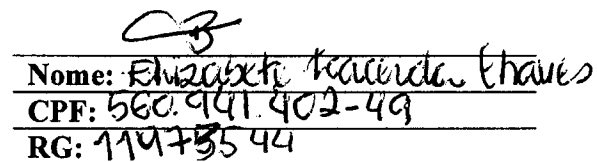 Nome: Elizabete Lacerda Chaves
CPF: 560.941.402-49
RG: 11473544